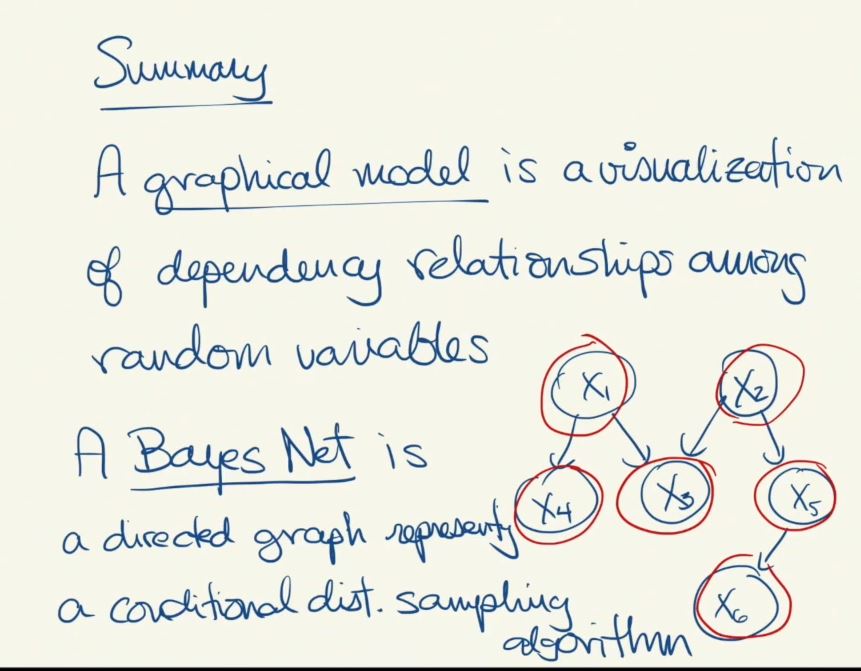 Summary
A graphical model is a visualization
of dependency relationships among
random variables
X1 X2
A Bayes Net is
X4 X3 X5
a directed graph representy
a conditional dist. sampling
X6
algorithm